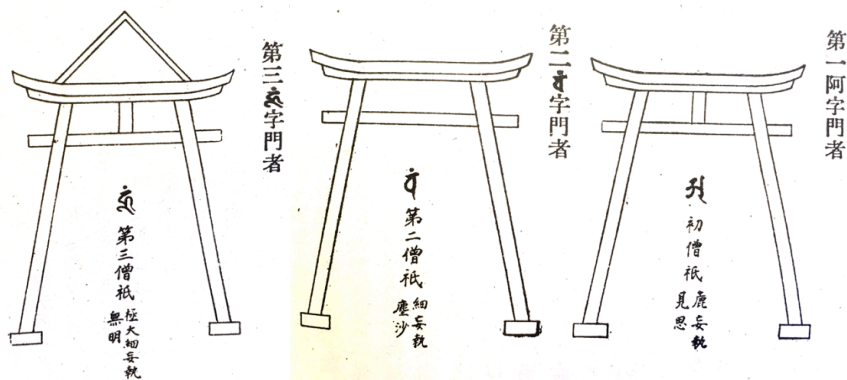 第一阿字門者
初僧祇
麁妄執
見思
第二字門者
第二僧祇
細妄執
塵沙
第三字門者
第三僧祇
極大細妄執
無明